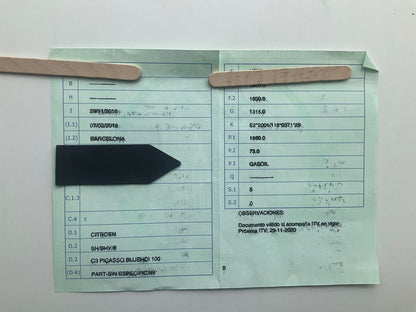 B
H
I 29/11/2018
(I.1) 07/02/2018
(I.2) BARCELONA
C.1.3
C.4 c
D.1 CITROEN
D.2 SH/BHY/B
D.3 C3 PICASSO BLUEHDI 100
(D.4) PART-SIN ESPECIFICAR
F.2 1800.0
G 1315.0
K
P.1 1560.0
P.2 73.0
P.3 GASOIL
Q
S.1 5
S.2 0
OBSERVACIONES:
Documento válido si acompaña ITV en vigor.
Próxima ITV: 29-11-2020